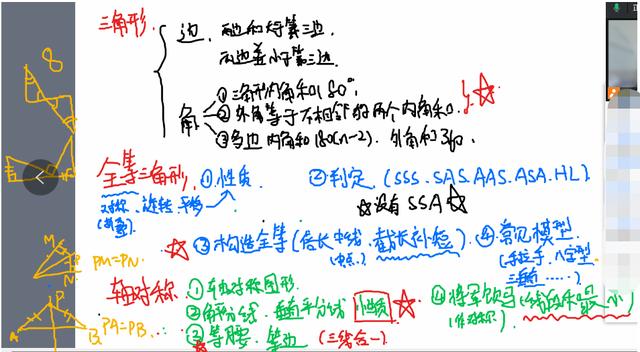 三角形
边、两边和大于第三边
两边差小于第三边.
8
角
①三角形内角和180°.
②外角等于不相邻的两个内角和.
③多边内角和180(n-2). 外角和360.
全等三角形.
①性质.
②判定. (SSS.SAS.AAS.ASA.HL)
对称、旋转、平移
☆没有SSA☆
③构造全等(倍长中线.截长补短).
④常见模型.
(中点.)
(手拉手、八字型
三垂直......)
M
P
N
PM=PN
轴对称.
①轴对称图形
②角平分线.垂直平分线
性质
④将军饮马(线段和最小)
(作对称)
P
A
B
PA=PB.
③等腰.等边
(三线合一)